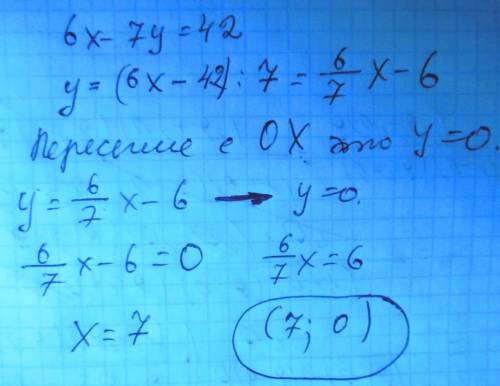 6x - 7y = 42
y = (6x - 42) : 7 = 6/7 x - 6
Пересечние с OX это y = 0.
y = 6/7 x - 6 → y = 0.
6/7 x - 6 = 0 6/7 x = 6
x = 7 (7; 0)